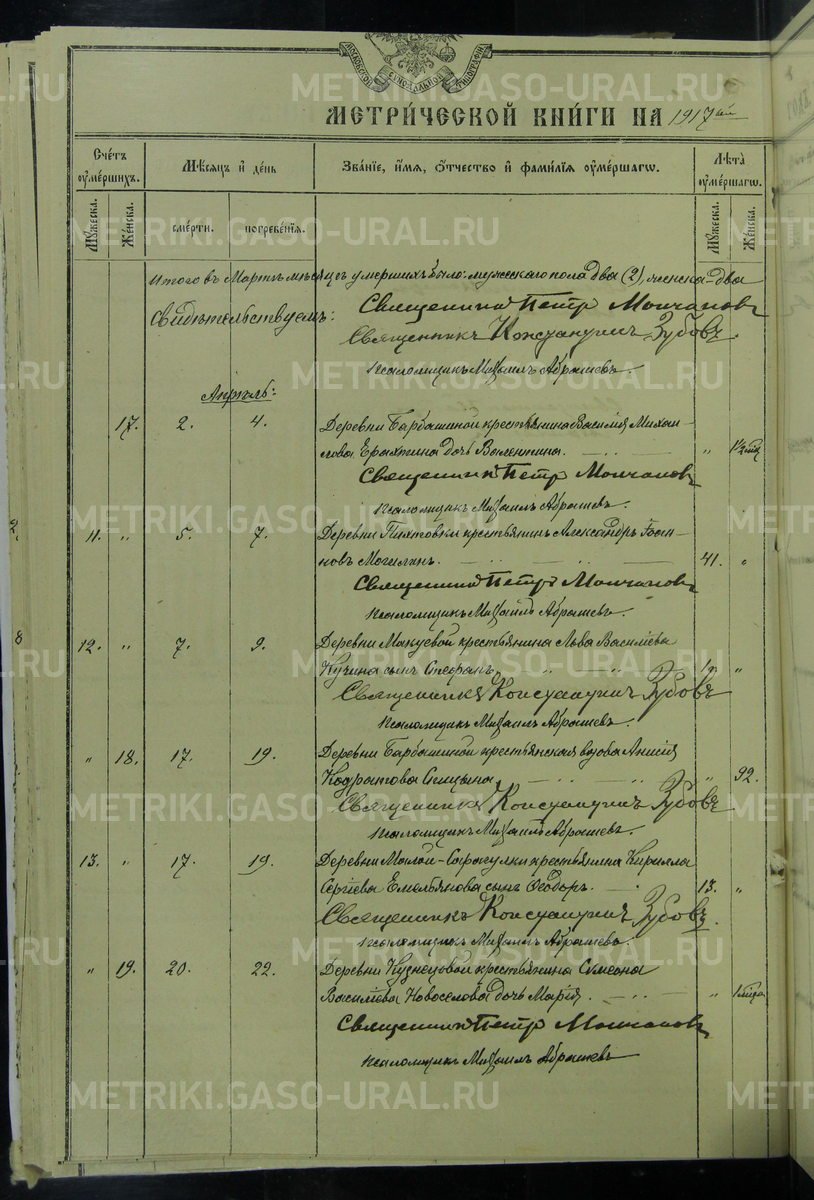 МОСКОВСКОЙ СѴНОДАЛЬНОЙ ТИПОГРАФІИ
МЕТРИ́ЧЕСКОЙ КНИ́ГИ НА 1917ый
Сче́тъ оуме́ршихъ.
Мѣсяцъ и день
Зва́ніе, и́мя, о́тчество и фами́лія оуме́ршагѡ.
Лѣта оуме́ршагѡ.
Му́жеска.
Же́нска.
сме́рти.
погребе́нія.
Му́жеска.
Же́нска.
Итого въ Мартѣ мѣсяцѣ умершихъ было: мужескаго пола два (2), женска - два
Свидѣтельствуемъ: Священникъ Петръ Молчановъ
Священникъ Константинъ Зубовъ.
Псаломщикъ Михаилъ Абрашевъ.
Апрѣль:
17. 2. 4. Деревни Барбашиной крестьянина Василія Михаи-
лова Ерахтина дочь Валентина. „
Священникъ Петръ Молчановъ
Псаломщикъ Михаилъ Абрашевъ.
11. „ 5. 7. Деревни Пихтовки крестьянинъ Александръ Іоан-
новъ Могилинъ. 41. „
Священникъ Петръ Молчановъ
Псаломщикъ Михаилъ Абрашевъ.
12. „ 7. 9. Деревни Макуевой крестьянина Льва Василіева
Кучина сынъ Стефанъ. „
Священникъ Константинъ Зубовъ
Псаломщикъ Михаилъ Абрашевъ.
„ 18. 17. 19. Деревни Барбашиной крестьянская вдова Анисія
Кодратова Спицына „ 92.
Священникъ Константинъ Зубовъ
Псаломщикъ Михаилъ Абрашевъ.
13. „ 17. 19. Деревни Малой-Сарапулки крестьянина Кирилла
Сергіева Емельянова сынъ Ѳеодоръ. 13. „
Священникъ Константинъ Зубовъ.
Псаломщикъ Михаилъ Абрашевъ.
„ 19. 20. 22. Деревни Кузнецовой крестьянина Симеона
Василіева Новоселова дочь Марія. „
Священникъ Петръ Молчановъ
Псаломщикъ Михаилъ Абрашевъ
METRIKI.GASO-URAL.RU